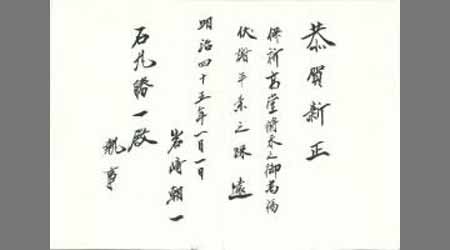 恭賀新正
併祈高堂倚末之御萬福
伏謝平素之疎遠
明治四十五年一月一日
岩崎朝一
石丸勝一殿